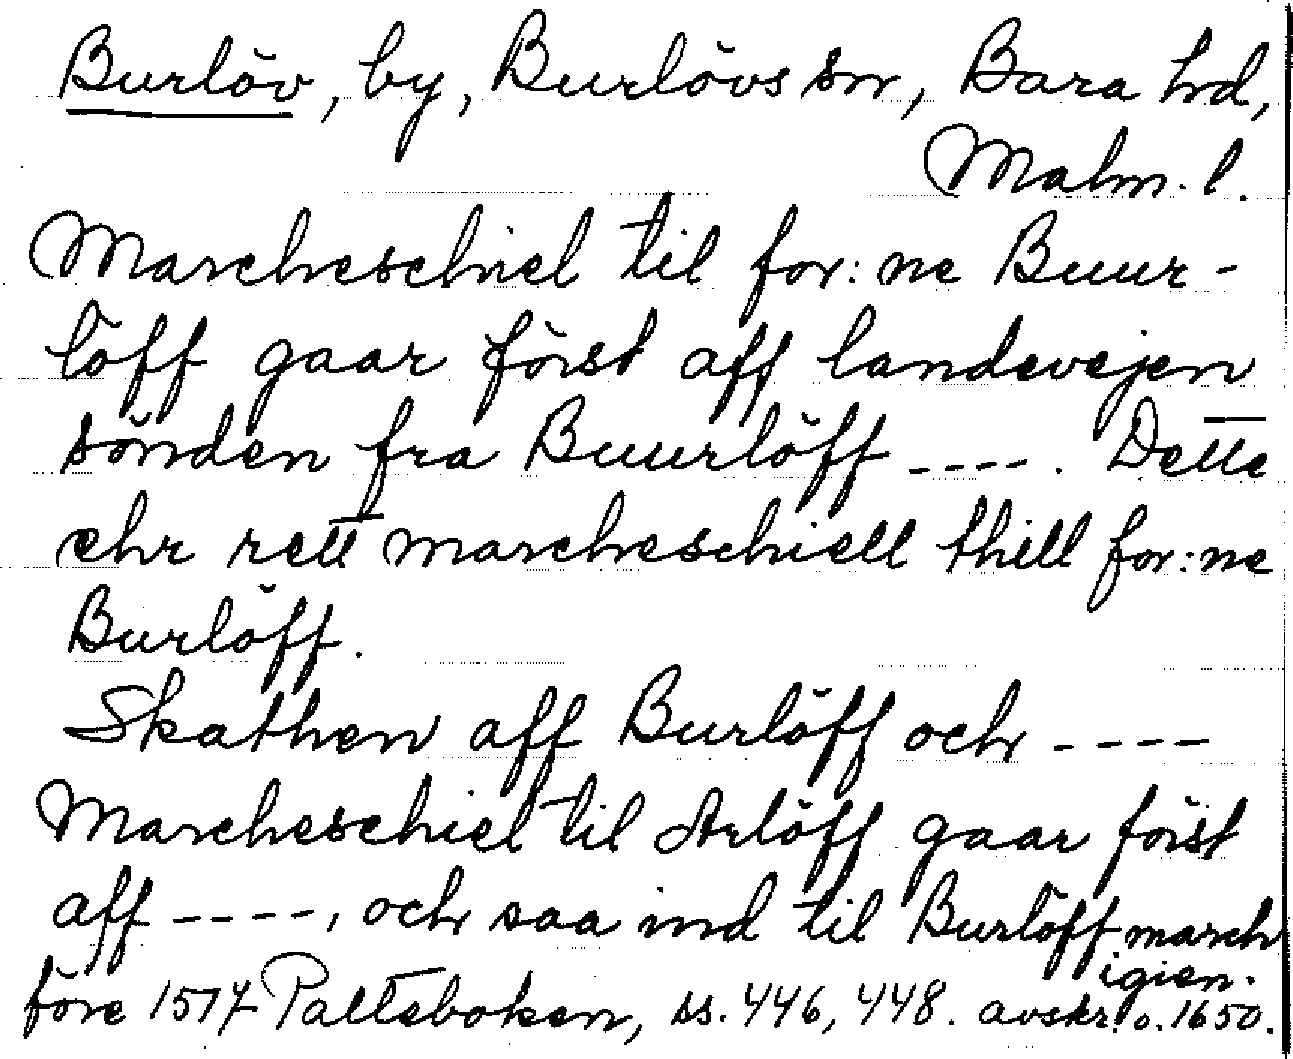 Burlöv, by, Burlövs sn, Bara hd,
Malm. l.
Marcheschiel til for: ne Buur-
löff gaar först aff landevejen
sönden fra Buurlöff ----. Dette
ehr rett marcheschiell thill for:ne
Burlöff.
Skathen aff Burlöff och ----
Marcheschiel til Arlöff gaar först
aff ----, och saa ind til Burlöff march
igien.
före 1517 Palteboken, ss. 446, 448. avskr. o. 1650.